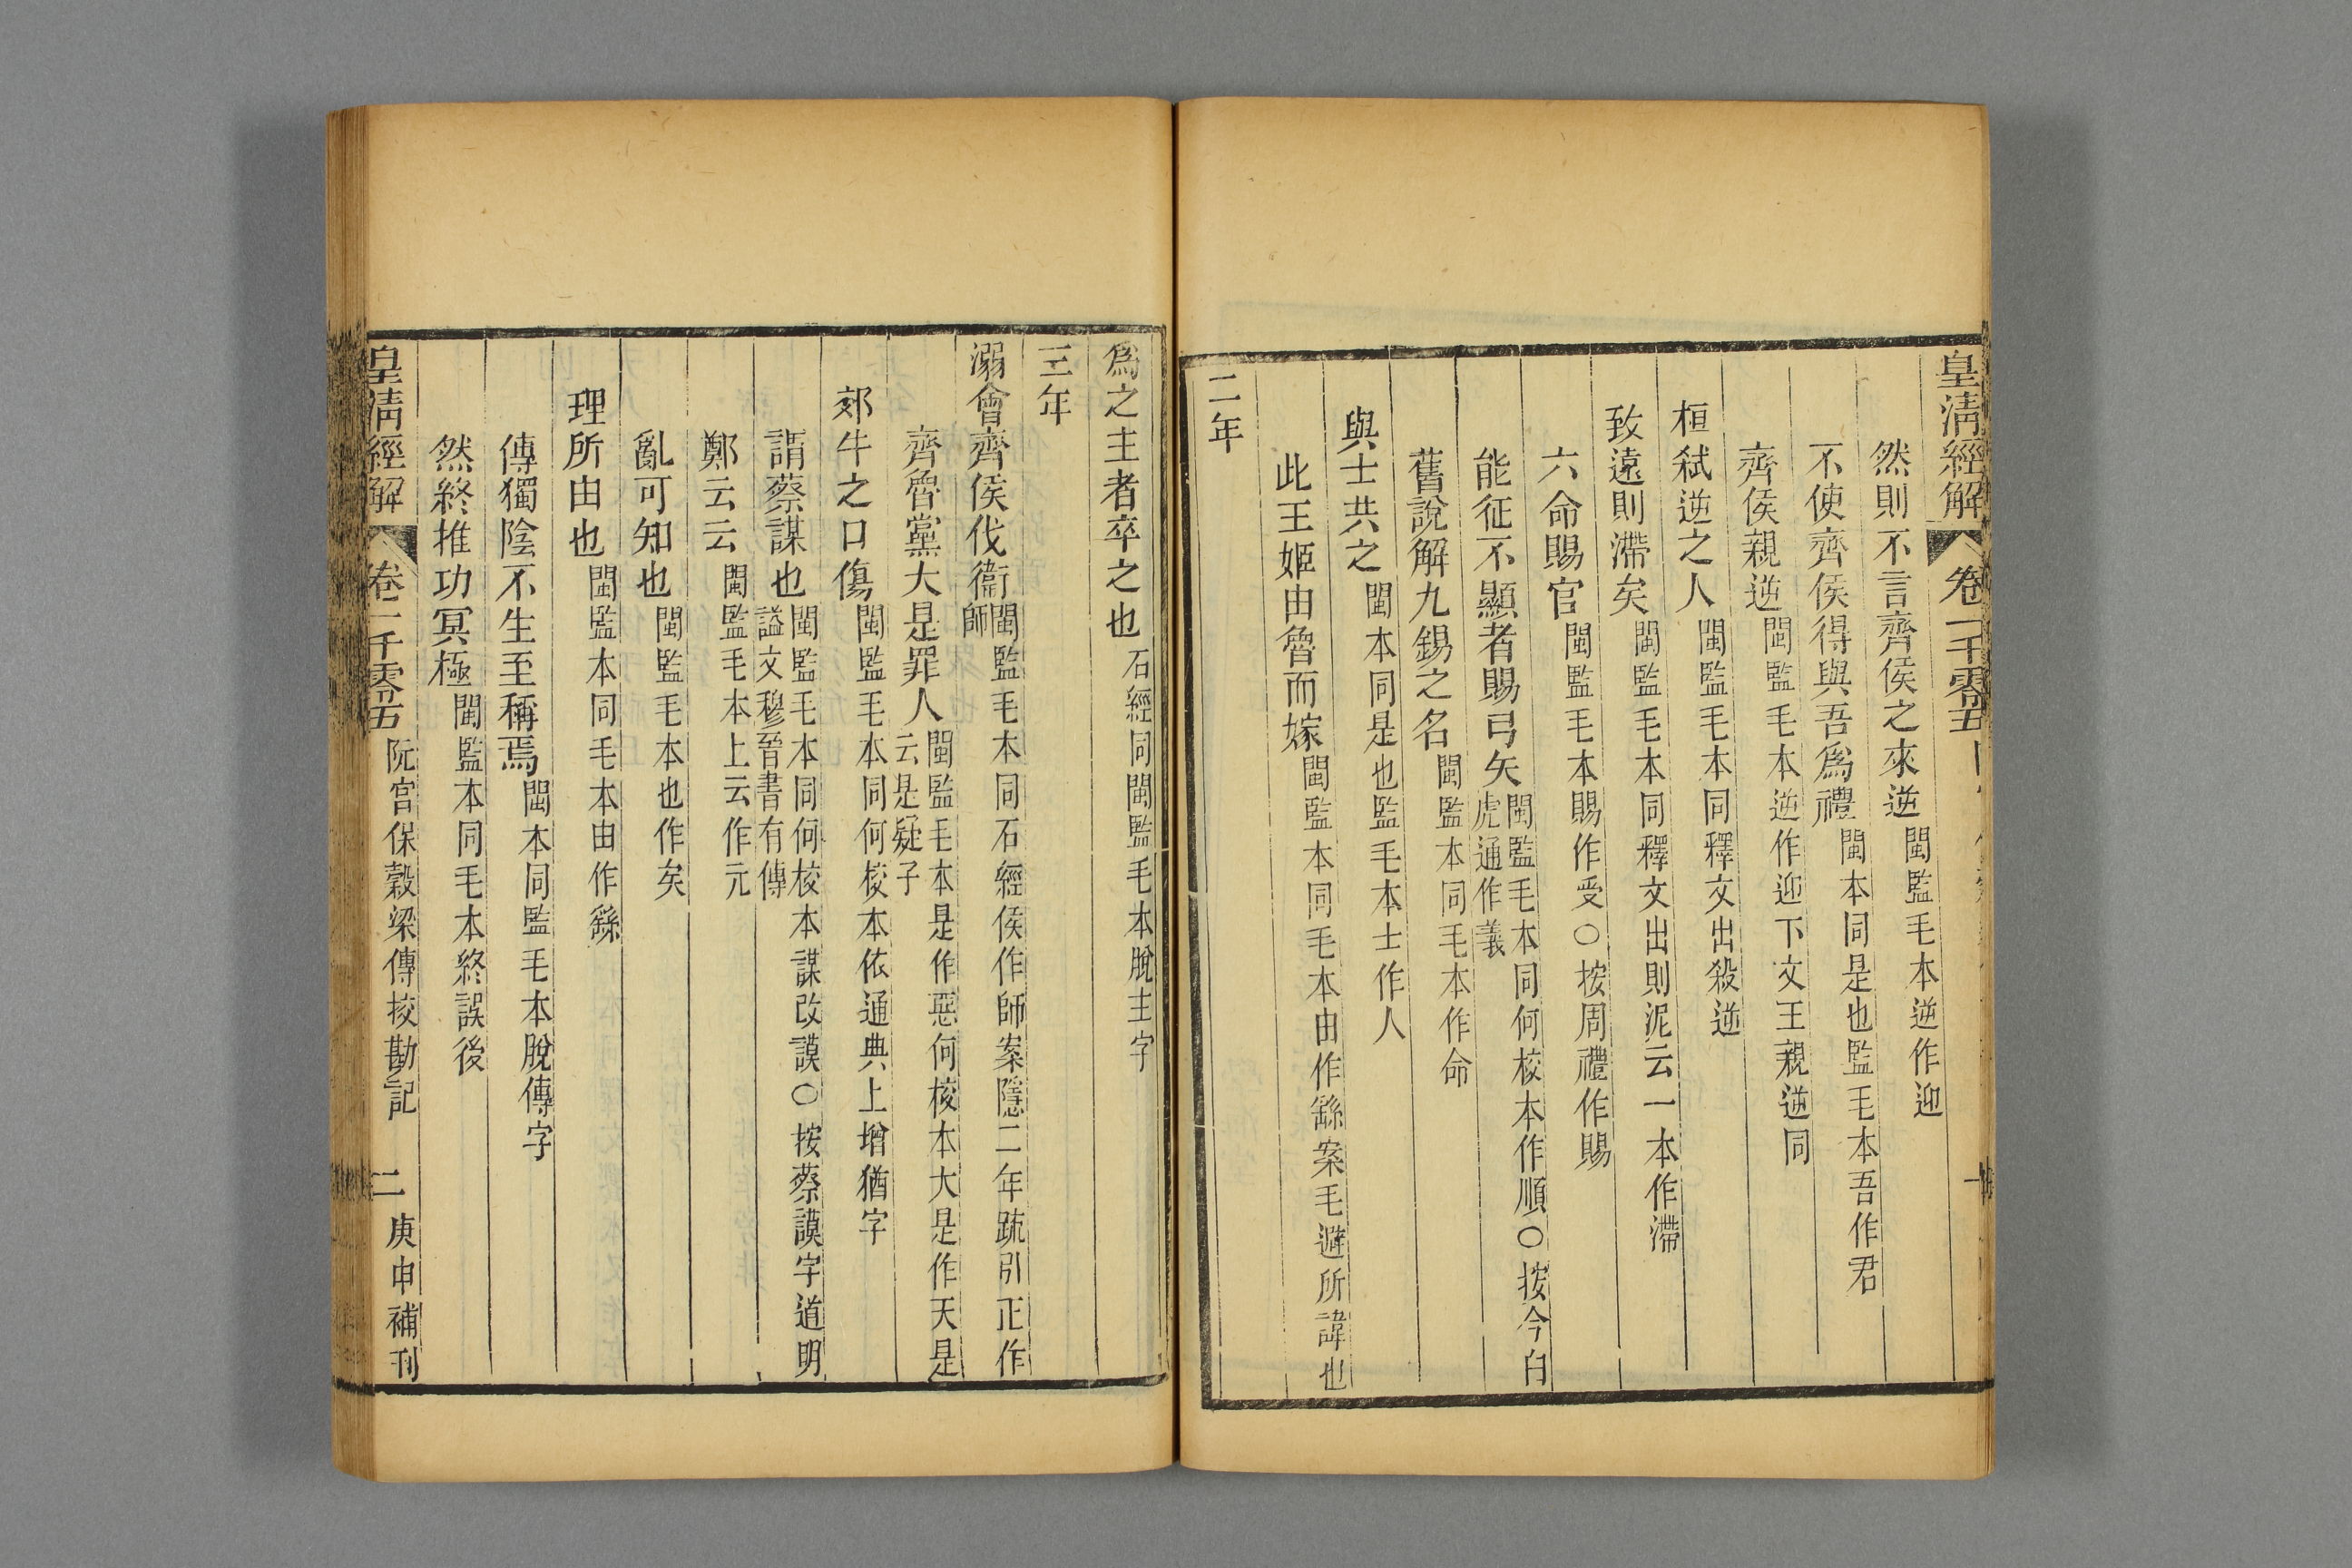 皇清經解 卷一千零五 一
然則不言齊侯之來逆 閩監毛本逆作迎
不使齊侯得與吾爲禮 閩本同是也監毛本吾作君
齊侯親逆 閩監毛本逆作迎下文王親逆同
桓弒逆之人 閩監毛本同釋文出殺逆
致遠則滯矣 閩監毛本同釋文出則泥云一本作滯
六命賜官 閩監毛本賜作受〇按周禮作賜
能征不顯者賜弓矢 閩監毛本同何校本作順〇按今白虎通作義
舊說解九錫之名 閩監本同毛本作命
與士共之 閩本同是也監毛本士作人
此王姬由魯而嫁 閩監本同毛本由作繇案毛避所諱也
二年
爲之主者卒之也 石經同閩監毛本脫主字
三年
溺會齊侯伐衞 閩監毛本同石經侯作師案隱二年疏引正作師
齊魯黨大是罪人 閩監毛本是作惡何校本大是作天是云是疑子
郊牛之口傷 閩監毛本同何校本依通典上增猶字
謂蔡謀也 閩監毛本同何校本謀改謨〇按蔡謨字道明謚文穆晉書有傳
鄭云云 閩監毛本上云作元
亂可知也 閩監毛本也作矣
理所由也 閩監本同毛本由作繇
傳獨陰不生至稱焉 閩本同監毛本脫傳字
然終推功冥極 閩監本同毛本終誤後
皇清經解 卷一千零五 阮宮保穀梁傳挍勘記 二 庚申補刊